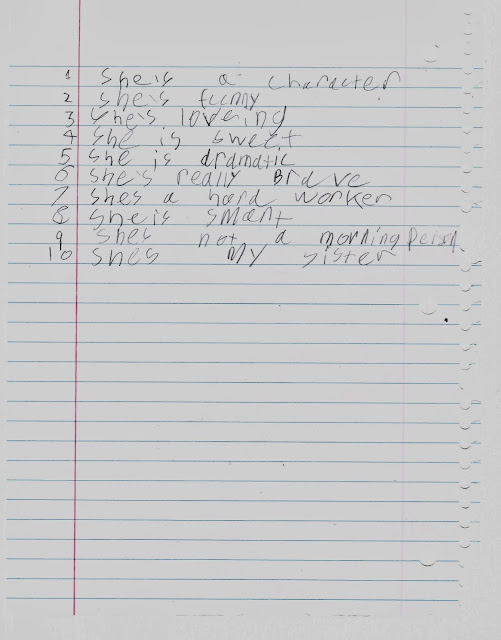 1 she is a character
2 she's funny
3 she's lovering
4 she is sweet
5 she is dramatic
6 she's really Brave
7 shes a hard worker
8 she is smart
9 shes not a morning person
10 shes my sister